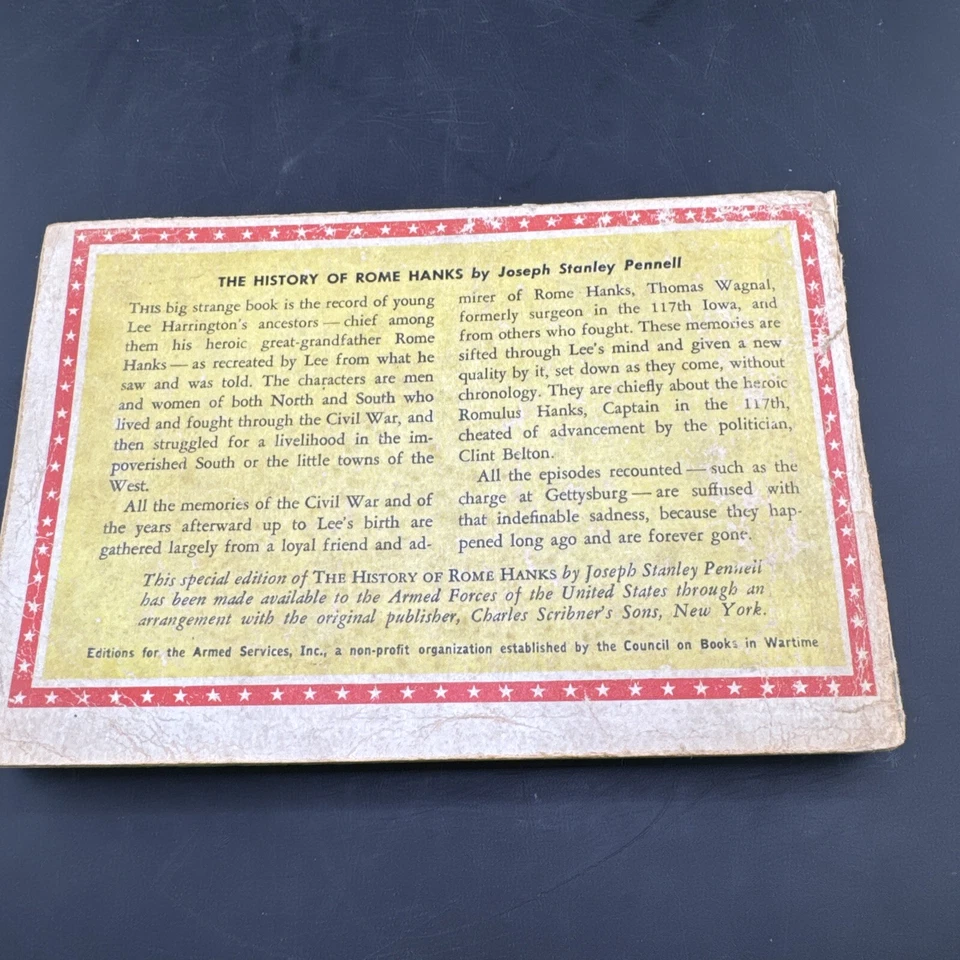 THE HISTORY OF ROME HANKS by Joseph Stanley Pennell
THIS big strange book is the record of young
Lee Harrington's ancestors — chief among
them his heroic great-grandfather Rome
Hanks — as recreated by Lee from what he
saw and was told. The characters are men
and women of both North and South who
lived and fought through the Civil War, and
then struggled for a livelihood in the im-
poverished South or the little towns of the
West.
All the memories of the Civil War and of
the years afterward up to Lee's birth are
gathered largely from a loyal friend and ad-
mirer of Rome Hanks, Thomas Wagnal,
formerly surgeon in the 117th Iowa, and
from others who fought. These memories are
sifted through Lee's mind and given a new
quality by it, set down as they come, without
chronology. They are chiefly about the heroic
Romulus Hanks, Captain in the 117th,
cheated of advancement by the politician,
Clint Belton.
All the episodes recounted — such as the
charge at Gettysburg — are suffused with
that indefinable sadness, because they hap-
pened long ago and are forever gone.
This special edition of THE HISTORY OF ROME HANKS by Joseph Stanley Pennell
has been made available to the Armed Forces of the United States through an
arrangement with the original publisher, Charles Scribner's Sons, New York.
Editions for the Armed Services, Inc., a non-profit organization established by the Council on Books in Wartime